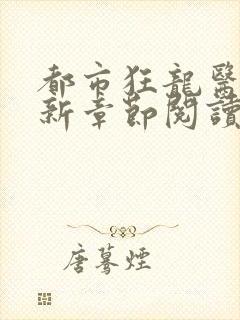 都市狂龍醫
新章節閱讀
唐驀煙